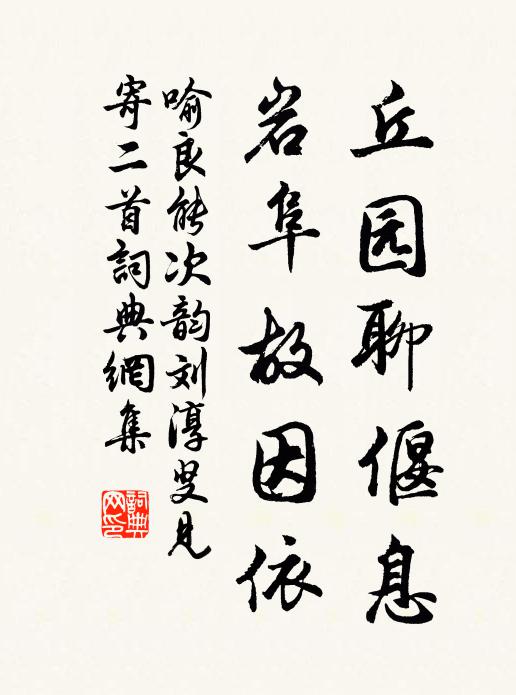 丘园聊偃息
岩阜故因依
喻良能次韵刘淳叟见
寄二首詞典網集
詞典網印